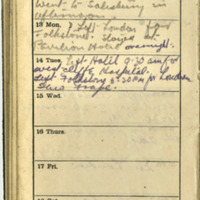 Went to Salisbury in
afternoon.
13 Mon. Left London for
Folkstone. Stayed at
Pavilion Hotel overnight.
14 Tues. Left Hotel 9.30 am for
West Cliffe Hospital.
Left Folkstone 6.30 PM for London
15 Wed.
16 Thurs.
17 Fri.
18 Sat.